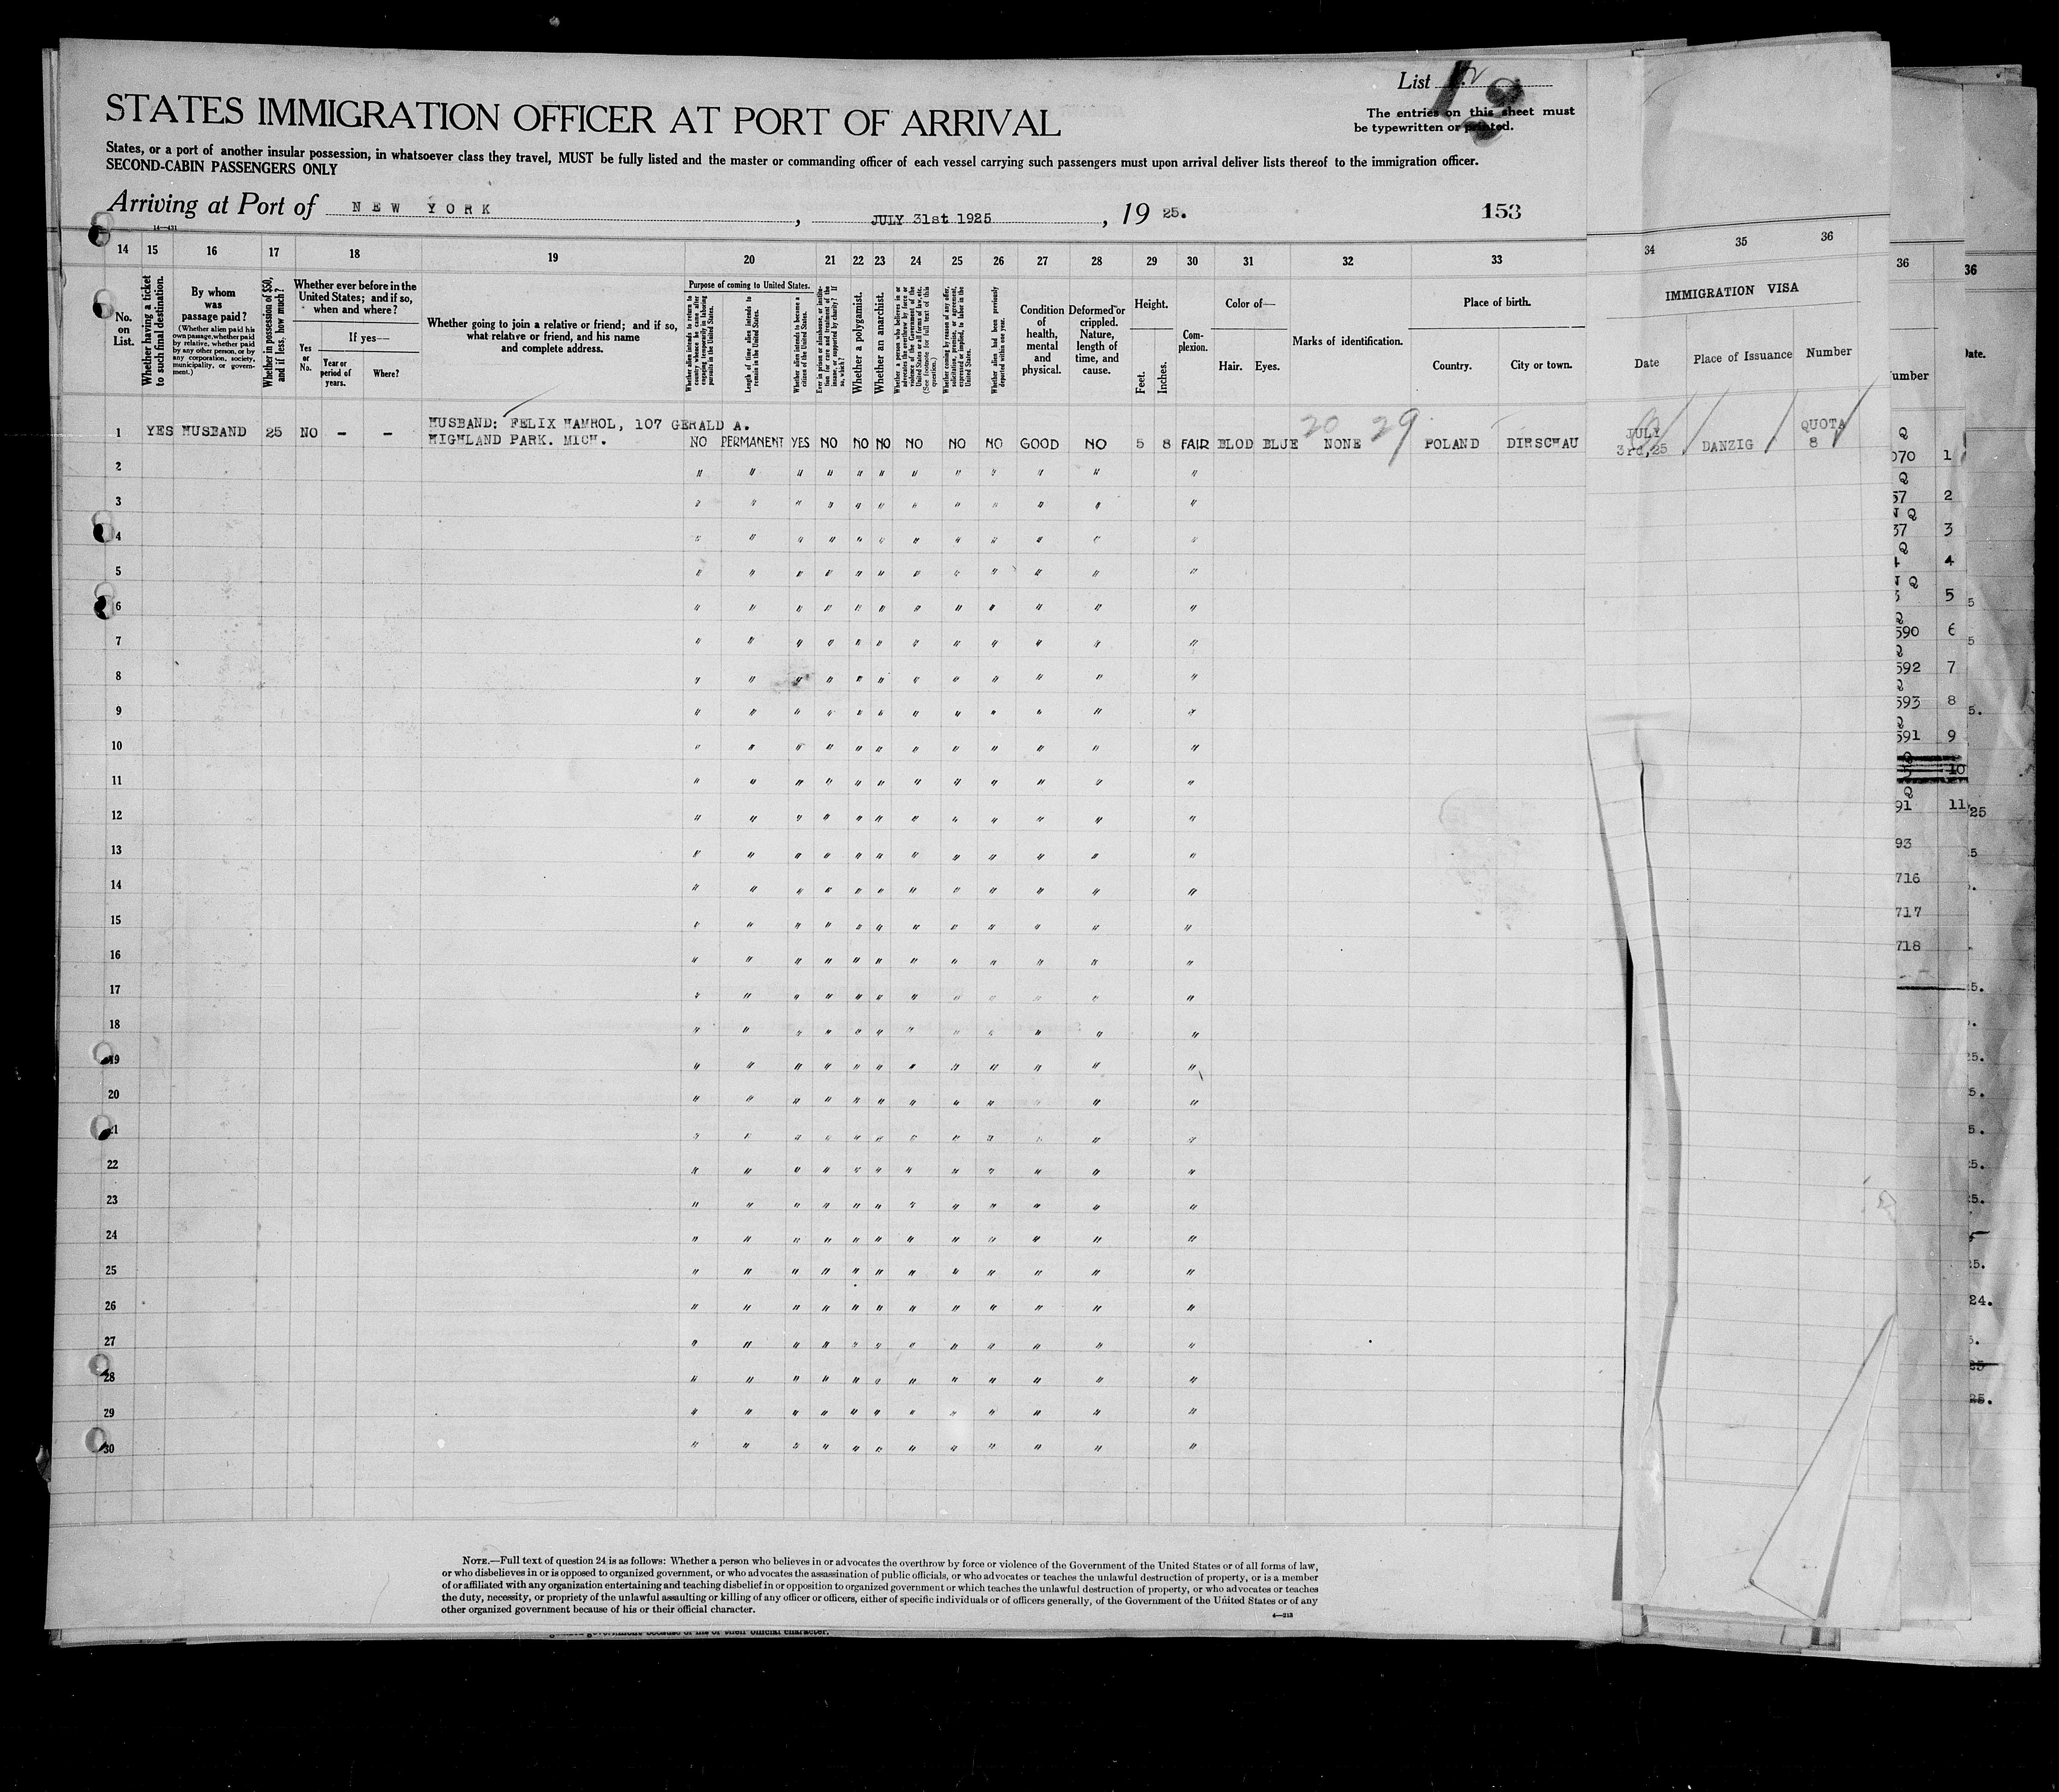 List
STATES IMMIGRATION OFFICER AT PORT OF ARRIVAL
The entries on this sheet must
be typewritten or printed.
States, or a port of another insular possession, in whatsoever class they travel, MUST be fully listed and the master or commanding officer of each vessel carrying such passengers must upon arrival deliver lists thereof to the immigration officer.
SECOND-CABIN PASSENGERS ONLY
Arriving at Port of NEW YORK , JULY 31st 1925 , 19 25. 153
14—431
14 15 16 17 18 19 20 21 22 23 24 25 26 27 28 29 30 31 32 33 34 35 36
No. on List.
Whether having a ticket to such final destination.
By whom was passage paid?
(Whether alien paid his own passage, whether paid by relative, whether paid by any other person, or by any corporation, society, municipality, or government.)
Whether in possession of $50, and if less, how much?
Whether ever before in the United States; and if so, when and where?
Yes or No.
If yes—
Year or period of years.
Where?
Whether going to join a relative or friend; and if so, what relative or friend, and his name and complete address.
Purpose of coming to United States.
Whether alien intends to return to country whence he came after engaging temporarily in laboring pursuits in the United States.
Length of time alien intends to remain in the United States.
Whether alien intends to become a citizen of the United States.
Ever in prison or almshouse, or institution for care and treatment of the insane, or supported by charity? If so, which?
Whether a polygamist.
Whether an anarchist.
Whether a person who believes in or advocates the overthrow by force or violence of the Government of the United States or all forms of law, etc. (See footnote for full text of this question.)
Whether coming by reason of any offer, solicitation, promise, or agreement, expressed or implied, to labor in the United States.
Whether alien had been previously deported within one year.
Condition of health, mental and physical.
Deformed or crippled. Nature, length of time, and cause.
Height.
Feet.
Inches.
Complexion.
Color of—
Hair.
Eyes.
Marks of identification.
Place of birth.
Country.
City or town.
IMMIGRATION VISA
Date
Place of Issuance
Number
1 YES HUSBAND 25 NO - - HUSBAND: FELIX HAMROL, 107 GERALD A.
HIGHLAND PARK. MICH. NO PERMANENT YES NO NO NO NO NO NO GOOD NO 5 8 FAIR BLOD BLUE NONE POLAND DIRSCHAU JULY 3rd,25 DANZIG QUOTA 8
20 29
2 " " " " " " " " " " " "
3 " " " " " " " " " " " "
4 " " " " " " " " " " " "
5 " " " " " " " " " " " "
6 " " " " " " " " " " " "
7 " " " " " " " " " " " "
8 " " " " " " " " " " " "
9 " " " " " " " " " " " "
10 " " " " " " " " " " " "
11 " " " " " " " " " " " "
12 " " " " " " " " " " " "
13 " " " " " " " " " " " "
14 " " " " " " " " " " " "
15 " " " " " " " " " " " "
16 " " " " " " " " " " " "
17 " " " " " " " " " " " "
18 " " " " " " " " " " " "
19 " " " " " " " " " " " "
20 " " " " " " " " " " " "
21 " " " " " " " " " " " "
22 " " " " " " " " " " " "
23 " " " " " " " " " " " "
24 " " " " " " " " " " " "
25 " " " " " " " " " " " "
26 " " " " " " " " " " " "
27 " " " " " " " " " " " "
28 " " " " " " " " " " " "
29 " " " " " " " " " " " "
30 " " " " " " " " " " " "
NOTE.—Full text of question 24 is as follows: Whether a person who believes in or advocates the overthrow by force or violence of the Government of the United States or of all forms of law,
or who disbelieves in or is opposed to organized government, or who advocates the assassination of public officials, or who advocates or teaches the unlawful destruction of property, or is a member
of or affiliated with any organization entertaining and teaching disbelief in or opposition to organized government or which teaches the unlawful destruction of property, or who advocates or teaches
the duty, necessity, or propriety of the unlawful assaulting or killing of any officer or officers, either of specific individuals or of officers generally, of the Government of the United States or of any
other organized government because of his or their official character.
4—213